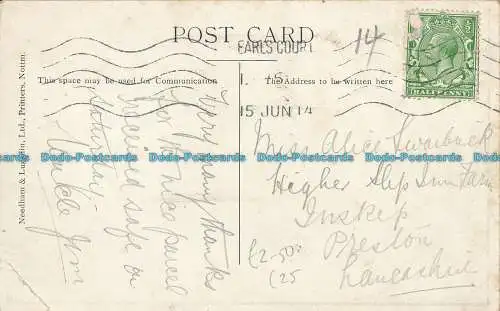 POST CARD
EARLS COURT
14
This space may be used for Communication
The Address to be written here
15 JUN 14
HALFPENNY
Needham & Lu , Ltd., Printers, Nottm.
Very many thanks
for nice parcel
received safe on
Saturday.
Uncle Jim
Miss Alice Swarbrick
Higher Slip Inn Farm
Inskip
Preston
Lancashire
£2-50
C25
Dodo-Postcards Dodo-Postcards Dodo-Postcards Dodo-Postcards
Dodo-Postcards Dodo-Postcards Dodo-Postcards Dodo-Postcards